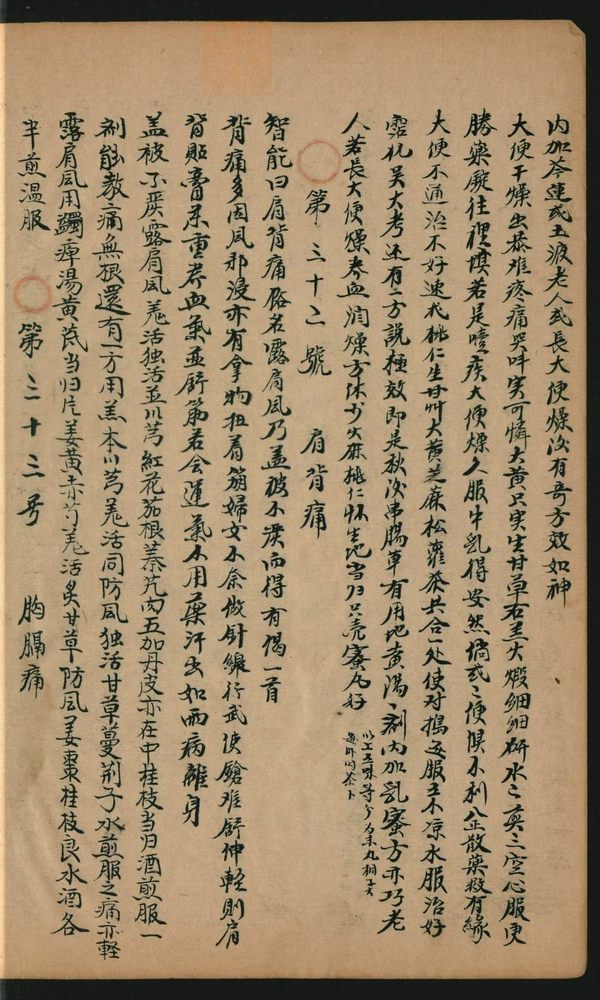 内加芩連或五服老人或長大便燥沒有奇方效如神
大便干燥出恭难疼痛哭呌实可憐大黄只实生甘草石羔火煅細細研水二 三空心服便
勝藥 往裡填若是噎疾大便燥久服牛乳得安然倘或二便俱不利八正散藥救有緣
大便不通治不好速找桃仁生甘艸大黄芝蔴松蘿茶共合一处使对搗 服五 凉水服治好
霊机吴大考还有二方說極效即是秋汝串腸車有用地黄湯二剤内加乳蜜方亦巧老
人若長大便燥养血潤燥方休少火麻桃仁怀生地当归只壳蜜丸好
以上五味等分为末丸梧子大
每 白茶下
第三十二號 肩背痛
智能曰肩背痛俗名露肩風乃盖被不嚴而得有偈一首
背痛多因風邪浸亦有拿物扭着筋婦女不余做針線行武使鎗难舒伸輕則肩
背贴膏系重养血氣並舒筋若会運氣不用藥汗出如雨病離身
盖被不嚴露肩風羌活独活並川芎紅花茄根蓁艽肉五加丹皮亦在中桂枝当归酒煎服一
剤能教痛無根還有一方用羔本川芎羌活同防風独活甘草蔓荆子水煎服之痛亦輕
露肩風用蠲痺湯黄芪当归片姜黄赤芍羌活炙甘草防風姜棗桂枝良水酒各
半煎温服
第三十三号 胸膈痛